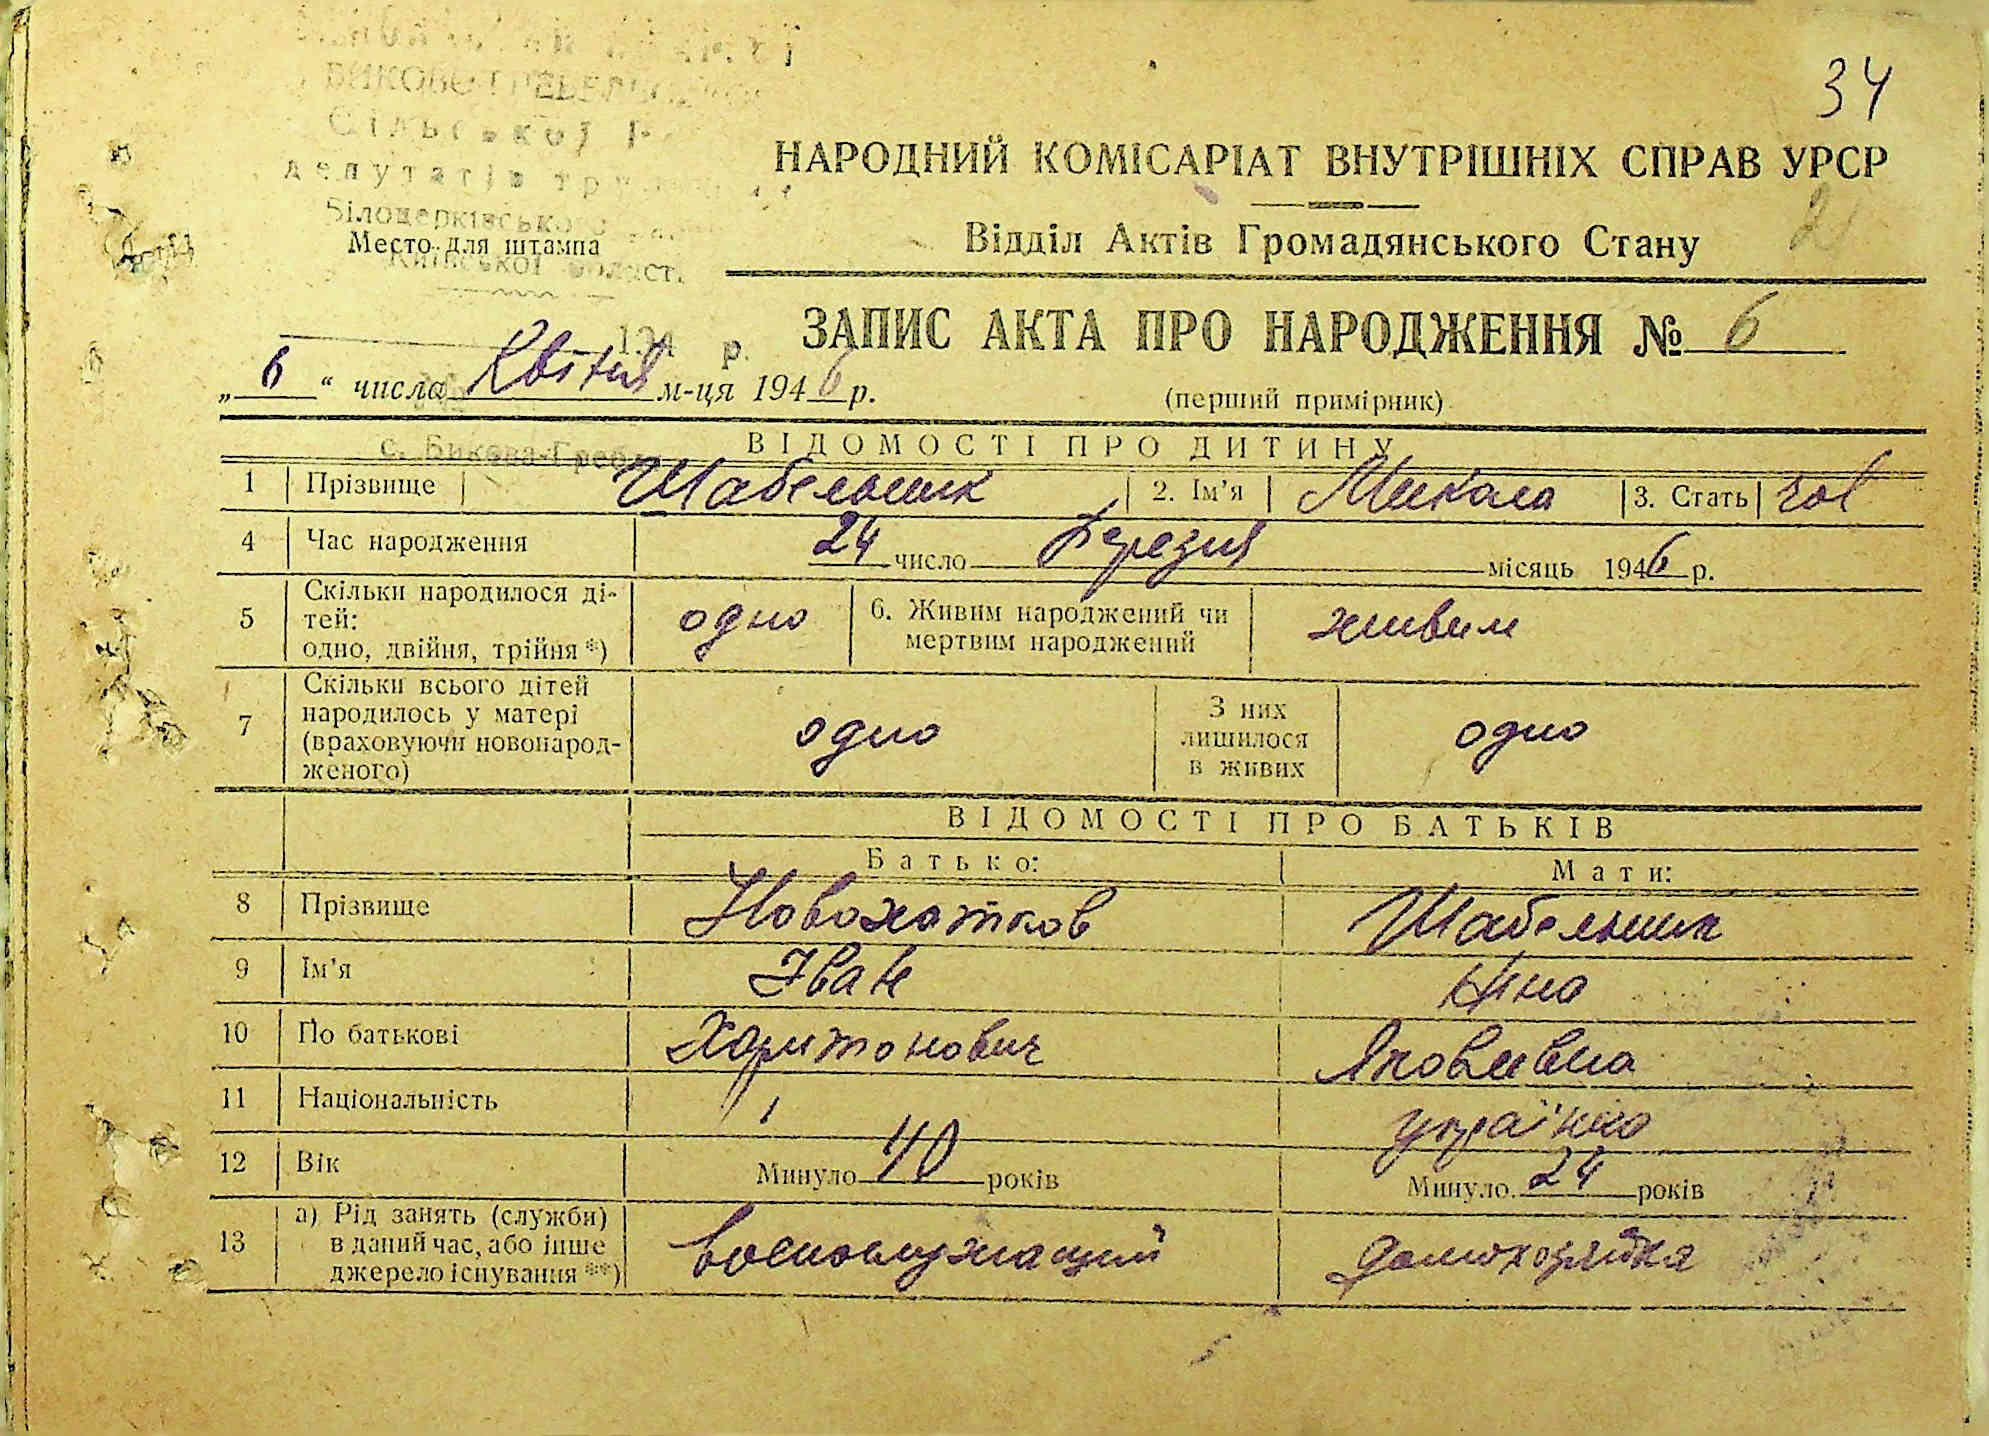 34
Сільської
депутатів
Білоцерківського
НАРОДНИЙ КОМІСАРІАТ ВНУТРІШНІХ СПРАВ УРСР
Место для штампа
Київської област.
Відділ Актів Громадянського Стану
194 р.
ЗАПИС АКТА ПРО НАРОДЖЕННЯ № 6
„6“ числа Квітня м-ця 1946 р.
(перший примірник)
с. Бикова-Гребля
ВІДОМОСТІ ПРО ДИТИНУ
1 Прізвище Шабельник 2. Ім'я Микола 3. Стать чол
4 Час народження 24 число Березня місяць 1946 р.
5 Скільки народилося ді-
тей:
одно, двійня, трійня *) одно 6. Живим народжений чи
мертвим народжений живим
7 Скільки всього дітей
народилось у матері
(враховуючи новонарод-
женого) одно З них
лишилося
в живих одно
ВІДОМОСТІ ПРО БАТЬКІВ
Батько: Мати:
8 Прізвище Новохатков Шабельник
9 Ім'я Іван Ніна
10 По батькові Харитонович Яковлевна
11 Національність українка
12 Вік Минуло 40 років Минуло 24 років
13 а) Рід занять (служби)
в даний час, або інше
джерело існування **) военослужащий домохозяйка